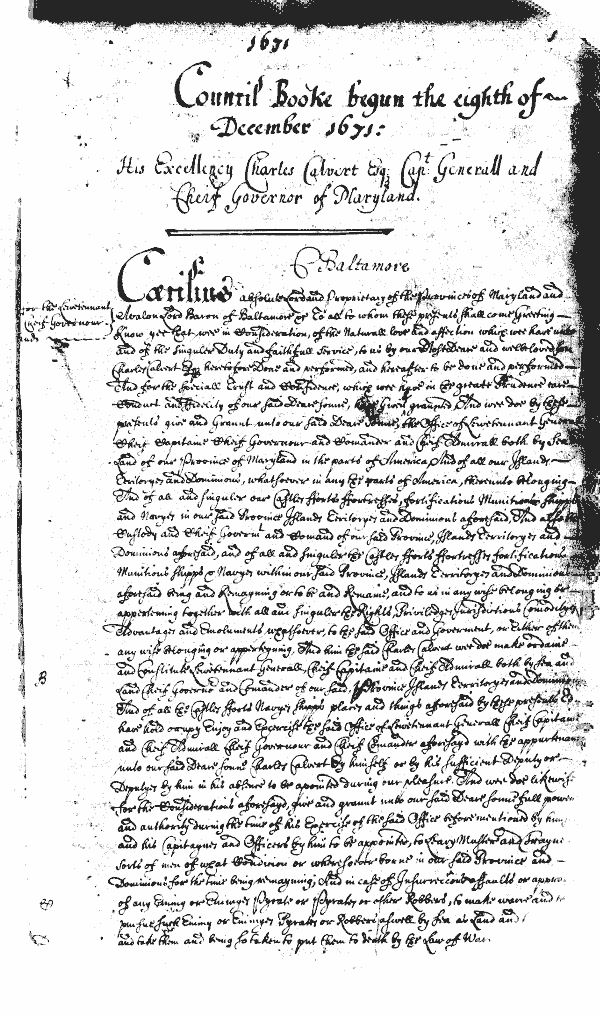 1671
1
Council Booke begun the eighth of
December 1671:
His Excellency Charles Calvert Esqr Capt Generall and
Cheif Governor of Maryland.
C Baltamore
Cæcilius absolute Lord and Proprietary of the Provinces of Maryland and
for the Lievetennant
Cheif Governour
Avalon Lord Baron of Baltamore &c To all to whom these presents shall come Greeting
Know yee that wee in Consideration, of the Naturall love and affection which wee have unto
and of the singuler Duty and faithfull Service, to us by our Most Deare and welbeloved Son
Charles Calvert Esqr heretofore Done and performed, and hereafter to be done and performed
And for the speciall Trust and Confidence, which wee repose in the greate Prudence care
Conduct and fidelity of our said Deare Sonne, have Given granted And wee doe by these
presents give and Grannt unto our said Deare Sonne, the Office of Lievetennant Generall
Cheif Capitaine Cheif Governour and Comander and Cheif Admirall both by Sea
Land of our Province of Maryland in the parts of America, And of all our Islands
Territoryes and Dominions, whatsoever in any the parts of America, thereunto belonging
And of all and singuler our Castles fforts ffortresses, fortifications Munitions shipps
and Navyes in our said Province Islands Territoryes and Dominions aforesaid, And also the
Custody and Cheif Governmt and Comand of our said Province, Islands Territoryes and
Dominions aforesaid, and of all and singuler the Castles fforts ffortresses fortifications
Munitions Shipps & Navyes within our said Province, Islands Territoryes and Dominions
aforesaid being and Remayning or to be and Remaine, and to us in any wise belonging or
apperteining together with all and singuler the Rights Priviledges Jurisdictions Comodityes
Advantages and Emoluments whatsoever, to the said Office and Government, or Either of them
any wise belonging or apperteyning. And him the said Charles Calvert wee doe make ordaine
and Constitute Lievetennant Generall, Cheif Capitaine and Cheif Admirall both by Sea and
B
Land Cheif Governor and Comander of our said, Province Islands Territoryes and Dominions
And of all the Castles fforts Navyes shipps places and things aforesaid by these presents To
have hold occupy Enjoy and Exercise the said Office of Lievetennant Generall Cheif Capitaine
and Cheif Admirall Cheif Governour and Cheif Comander aforesayd with the appurtenances
unto our said Deare Sonne Charles Calvert by himself or by his sufficient Deputy or
Deputyes by him in his absence to be apointed during our pleasure. And wee doe likewise
for the Considerations aforesayd, give and grannt unto our said Deare Sonne full power
and authority during the time of his Exercise of the said Office before mentioned by him
and his Capitaynes and Officers by him to be appointed, to Leavy Muster and Trayne
sorts of men of what Condition or wheresoever borne in our said Province and
Dominions for the time being remayning, And in case of Insurrections assaults or appro
of any Enimy or Enimyes Pyrate or Pyrates or other Robbers, to make warre and to
pursue such Enimy or Enimyes Pyrates or Robbers aswell by Sea as Land and
and take them and being so taken to put them to death by the Law of War